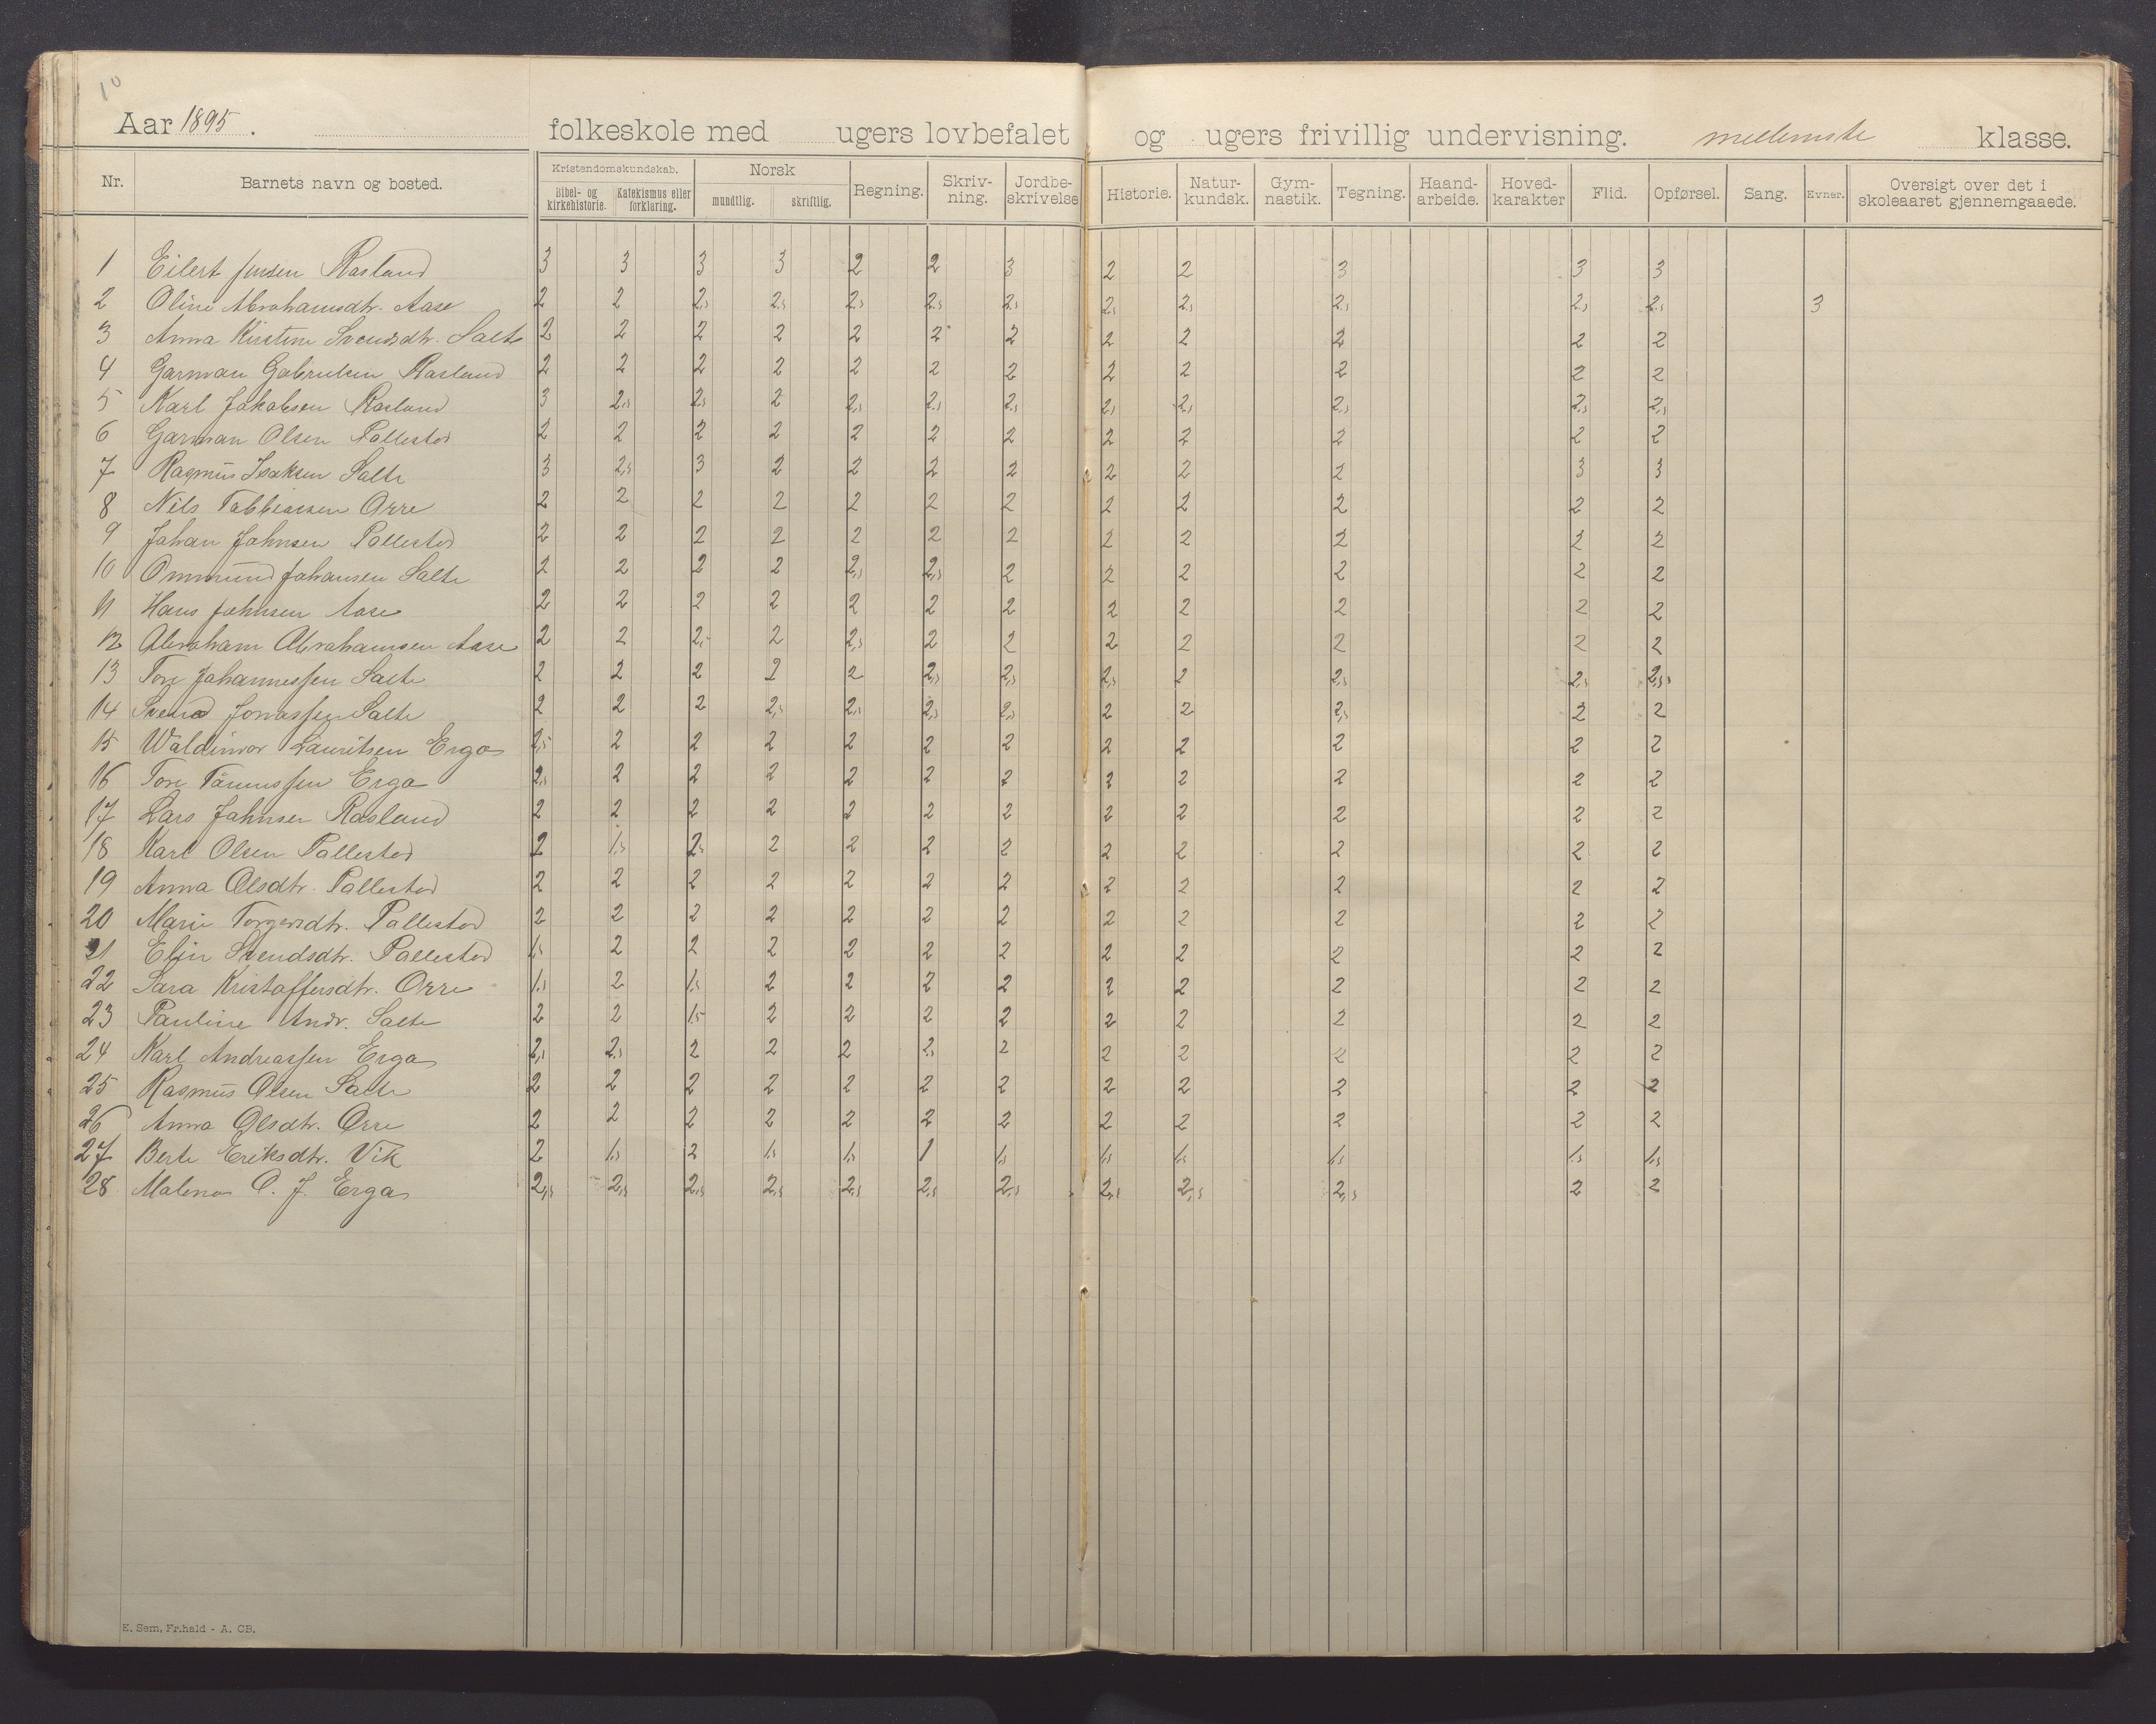 10
Aar 1895. folkeskole med ugers lovbefalet og ugers frivillig undervisning. mellemste klasse.
Nr. Barnets navn og bosted. Kristendomskundskab. Bibel- og kirkehistorie. Katekismus eller forklaring. Norsk mundtlig. skriftlig. Regning. Skriv-ning. Jordbe-skrivelse Historie. Natur-kundsk. Gym-nastik. Tegning. Haand-arbeide. Hoved-karakter Flid. Opførsel. Sang. Evner. Oversigt over det i skoleaaret gjennemgaaede.
1 Eilert Jensen Rasland 3 3 3 3 2 2 3 2 2 3 3 3
2 Oline Abrahamsdtr. Aase 2 2 2,5 2,5 2,5 2,5 2,5 2,5 2,5 2,5 2,5 2,5 3
3 Anna Kirstine Svendsdtr. Salte 2 2 2 2 2 2 2 2 2 2 2 2
4 Garman Gabrielsen Rasland 2 2 2 2 2 2 2 2 2 2 2 2
5 Karl Jakobsen Rasland 3 2,5 2,5 2 2,5 2,5 2,5 2,5 2,5 2,5 2,5 2,5
6 Garman Olsen Pollestad 2 2 2 2 2 2 2 2 2 2 2 2
7 Rasmus Isaksen Salte 3 2,5 3 2 2 2 2 2 2 2 3 3
8 Nils Tobbiassen Orre 2 2 2 2 2 2 2 2 2 2 2 2
9 Johan Johnsen Pollestad 2 2 2 2 2 2 2 2 2 2 2 2
10 Ommund Johansen Salte 2 2 2 2 2,5 2,5 2 2 2 2 2 2
11 Hans Johnsen Aase 2 2 2 2 2 2 2 2 2 2 2 2
12 Abraham Abrahamsen Aase 2 2 2,5 2 2,5 2 2 2 2 2 2 2
13 Tore Johannessen Salte 2 2 2 2 2 2,5 2,5 2,5 2 2,5 2,5 2,5
14 Svend Jonassen Salte 2 2 2 2,5 2,5 2,5 2,5 2 2 2,5 2 2
15 Waldimar Lauritsen Erga 2,5 2 2 2 2 2 2 2 2 2 2 2
16 Tore Tønnessen Erga 2,5 2 2 2 2 2 2 2 2 2 2 2
17 Lars Johnsen Rasland 2 2 2 2 2 2 2 2 2 2 2 2
18 Karl Olsen Pallestad 2 1,5 2,5 2 2 2 2 2 2 2 2 2
19 Anna Olsdtr. Pollestad 2 2 2 2 2 2 2 2 2 2 2 2
20 Marie Torgersdtr. Pallestad 2 2 2 2 2 2 2 2 2 2 2 2
21 Elin Svendsdtr. Pallestad 1,5 2 2 2 2 2 2 2 2 2 2 2
22 Sara Kristoffersdtr. Orre 1,5 2 1,5 2 2 2 2 2 2 2 2 2
23 Pauline Andr. Salte 2 2 1,5 2 2 2 2 2 2 2 2 2
24 Karl Andreassen Erga 2,5 2,5 2 2 2 2,5 2 2 2 2 2 2
25 Rasmus Olsen Salte 2 2 2 2 2 2 2 2 2 2 2 2
26 Anna Olsdtr. Orre 2 2 2 2 2 2 2 2 2 2 2 2
27 Berte Eriksdtr. Vik 2 1,5 2 1,5 1,5 1 1,5 1,5 1,5 1,5 1,5 1,5
28 Malena O. J. Erga 2,5 2,5 2,5 2,5 2,5 2,5 2,5 2,5 2,5 2,5 2 2
E. Sem, Fr.hald - A. CB.